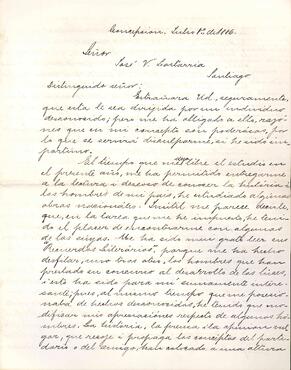 Concepcion, Julio 1º de 1886.
Señor
José V. Lastarria
Santiago
Distinguido señor:
Estrañará Ud, seguramente,
que esta le sea dirijida por un individuo
desconocido; pero me ha obligado a ello, razo-
nes que en mi concepto son poderosas, por
lo que se servirá disculparme, si he sido im-
portuno.
El tiempo que me libre el estudio en
el presente año, me ha permitido entregarme
a la lectura i deseoso de conocer la historia i
los hombres de mi pais, he estudiado algunas
obras nacionales. Inutil me parece decirle
que, en la tarea que me he impuesto, he teni-
do el placer de encontrarme con algunas
de las suyas. Me ha sido mui grato leer sus
"Recuerdos literarios", porque me ha hecho
desfilar, uno tras otro, los hombres que han
prestado su concurso al desarrollo de las luces,
i esto ha sido para mi sumamente intere-
sante; pues, al mismo tiempo que me posesio-
naba de hechos desconocidos, he tenido que mo-
dificar mis apreciaciones respecto de algunos hom-
bres. La historia, la prensa i la opinion vul-
gar, que recoje i propaga los conceptos del parti-
dario o del enemigo, han colocado a una altura